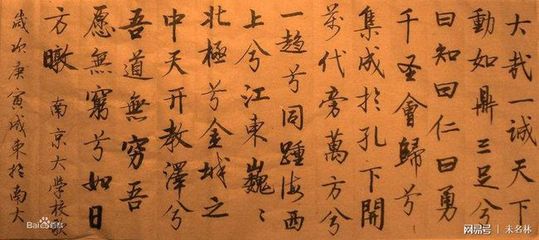 大哉一誠天下
動如鼎三足兮
曰知曰仁曰勇
千聖會歸兮
集成扵孔下開
萬代旁萬方兮
一趨兮同踵海西
上兮江東巍〻
北極兮金城之
中天開教澤兮
吾道無窮吾
愿無窮兮如日
方暾 南京大學校歌
歲次庚寅成東扵南大
Bai百科
网易号 | 未名林